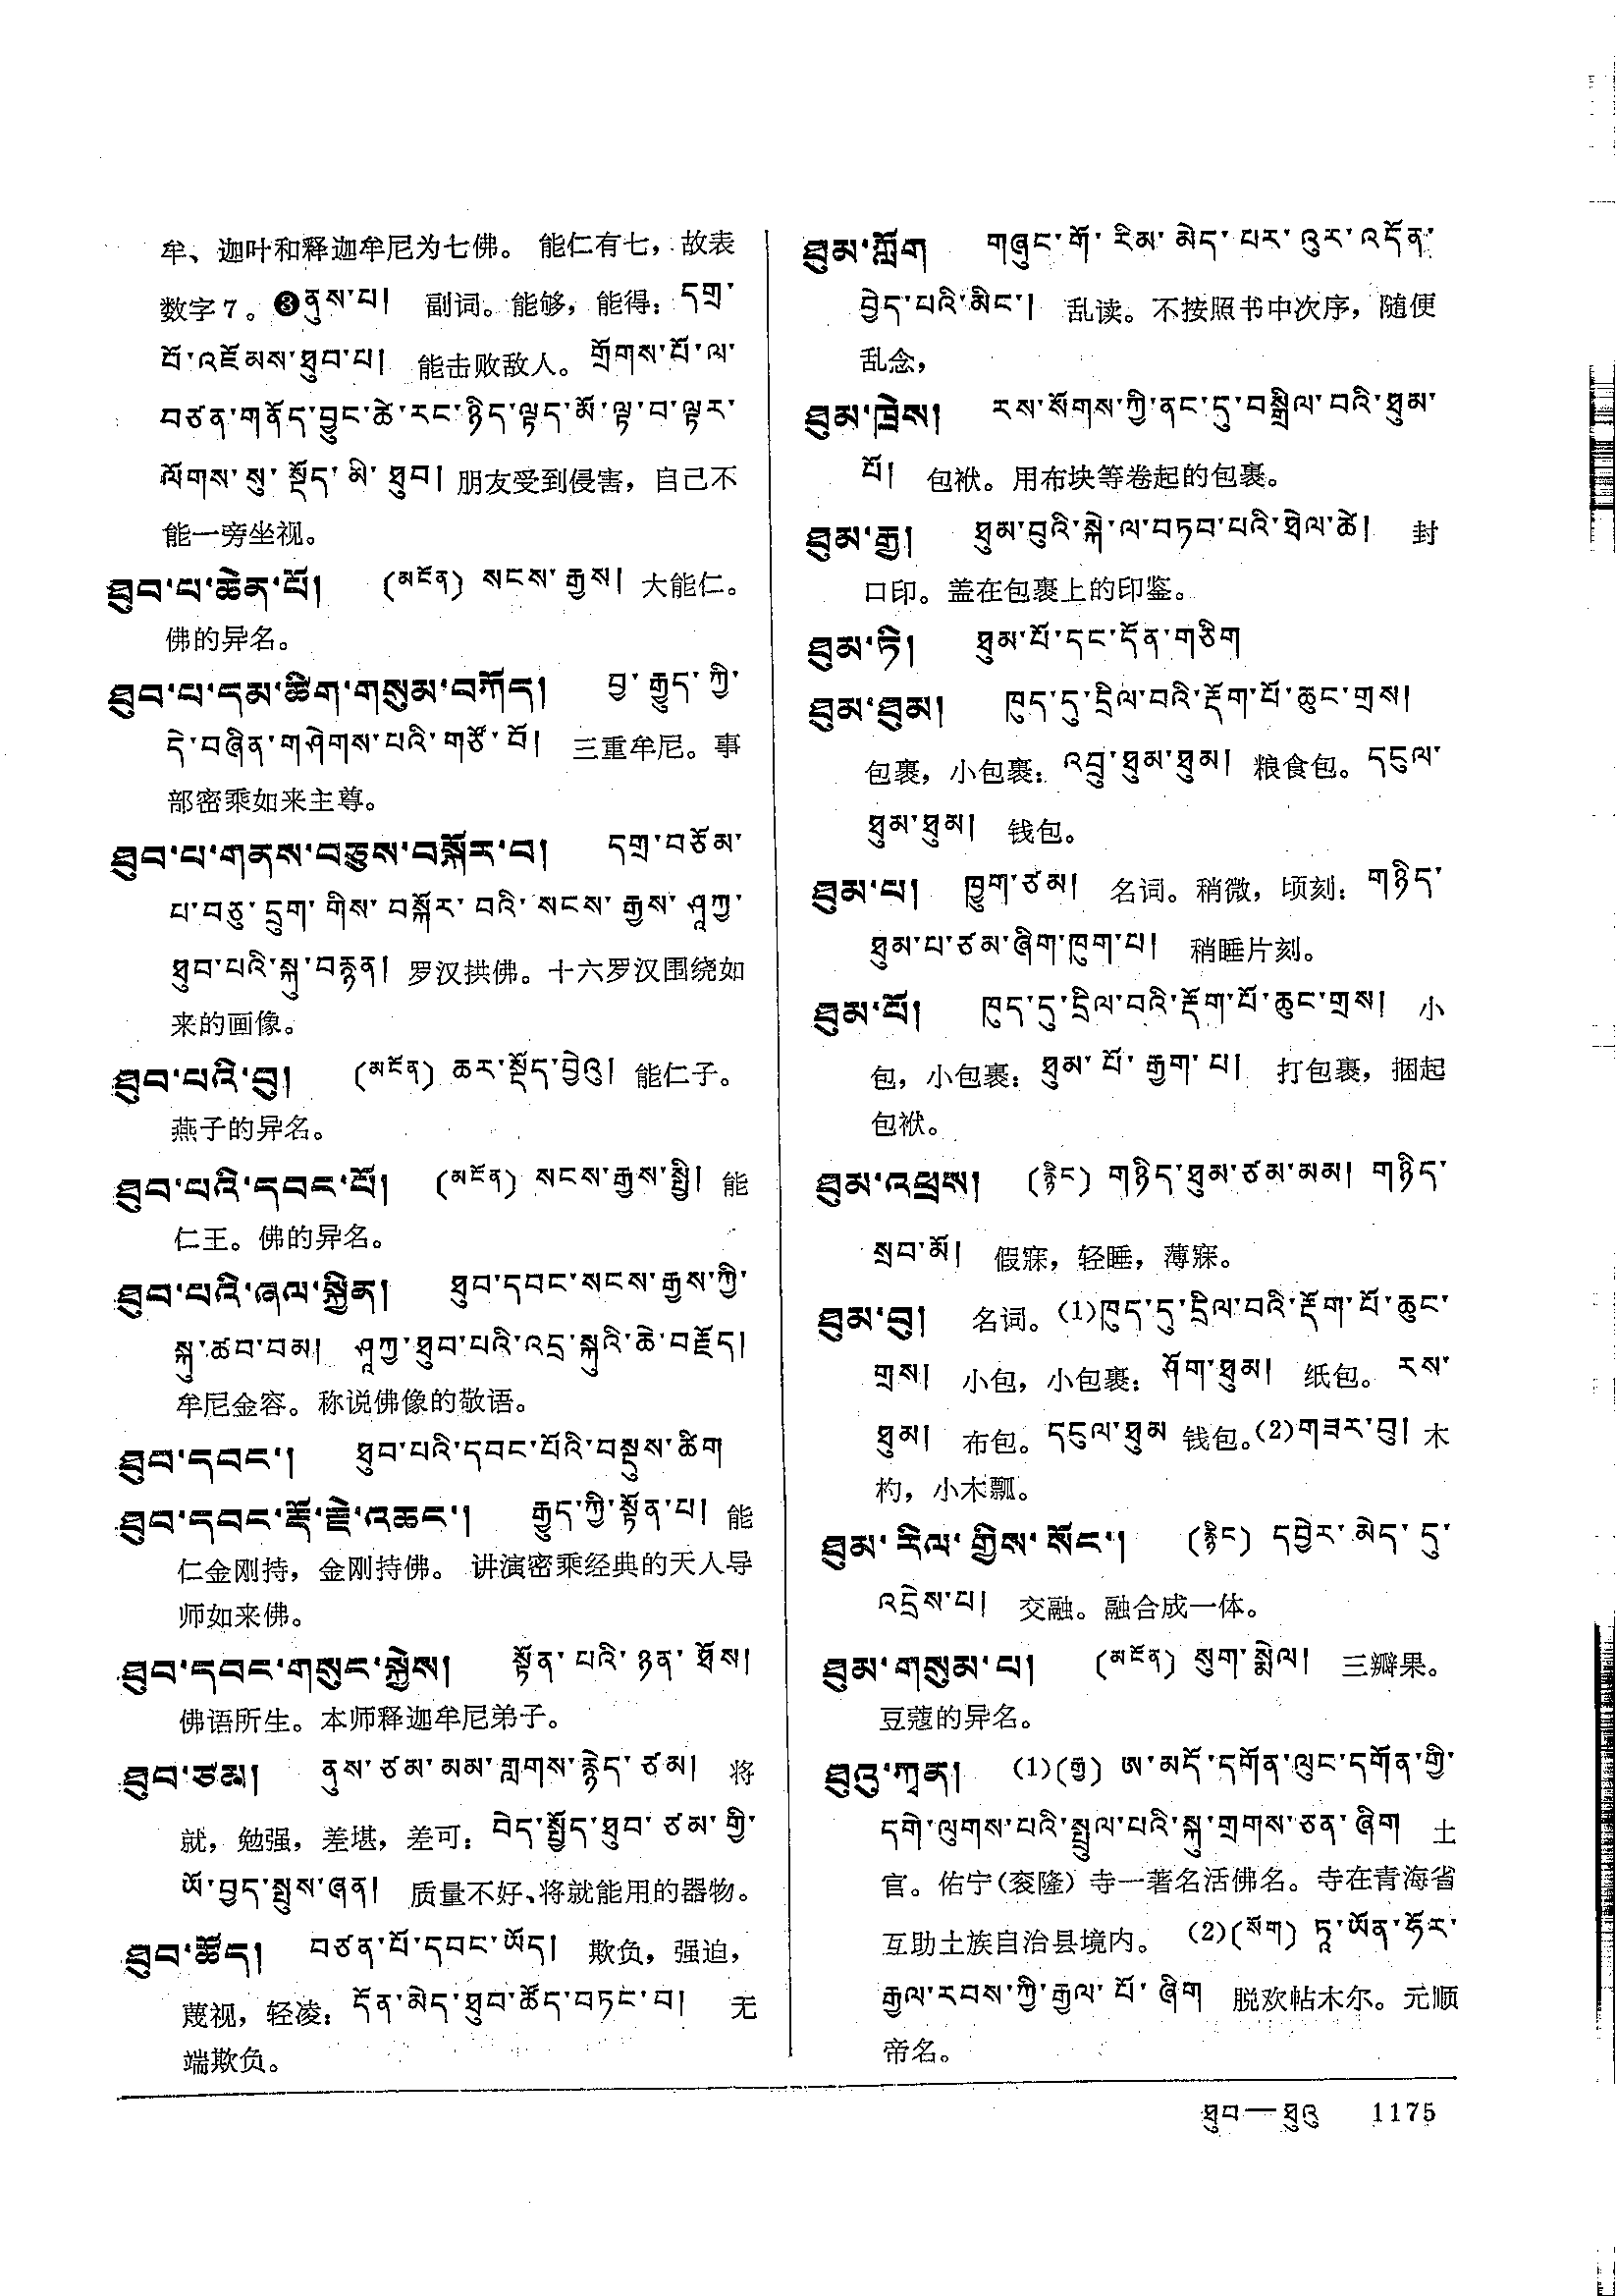 牟、迦叶和释迦牟尼为七佛。 能仁有七，故表
数字7。❸ནུས་པ། 副词。能够，能得：དགྲ་
པོ་འཇོམས་ཐུབ་པ། 能击败敌人。གྲོགས་པོ་ལ་
བཙན་གནོད་བྱུང་ཚེ་རང་ཉིད་ལྟད་མོ་ལྟ་བ་ལྟར་
ལོགས་སུ་སྡོད་མི་ཐུབ། 朋友受到侵害，自己不
能一旁坐视。
ཐུབ་པ་ཆེན་པོ། (མངོན) སངས་རྒྱས། 大能仁。
佛的异名。
ཐུབ་པ་དམ་ཚིག་གསུམ་བཀོད། བྱ་རྒྱུད་ཀྱི་
དེ་བཞིན་གཤེགས་པའི་གཙོ་བོ། 三重牟尼。事
部密乘如来主尊。
ཐུབ་པ་གནས་བཅུས་བསྐོར་བ། དགྲ་བཅོམ་
པ་བཅུ་དྲུག་གིས་བསྐོར་བའི་སངས་རྒྱས་ཤཱཀྱ་
ཐུབ་པའི་སྐུ་བརྙན། 罗汉拱佛。十六罗汉围绕如
来的画像。
ཐུབ་པའི་བུ། (མངོན) ཆར་སྡོད་བྱེའུ། 能仁子。
燕子的异名。
ཐུབ་པའི་དབང་པོ། (མངོན) སངས་རྒྱས་སྤྱི། 能
仁王。佛的异名。
ཐུབ་པའི་ཞལ་སྐྱིན། ཐུབ་དབང་སངས་རྒྱས་ཀྱི་
སྐུ་ཚབ་བམ། ཤཱཀྱ་ཐུབ་པའི་འདྲ་སྐུའི་ཆེ་བརྗོད།
牟尼金容。称说佛像的敬语。
ཐུབ་དབང་། ཐུབ་པའི་དབང་པོའི་བསྡུས་ཚིག
ཐུབ་དབང་རྡོ་རྗེ་འཆང་། རྒྱུད་ཀྱི་སྟོན་པ། 能
仁金刚持，金刚持佛。 讲演密乘经典的天人导
师如来佛。
ཐུབ་དབང་གསུང་སྐྱེས། སྟོན་པའི་ཉན་ཐོས།
佛语所生。本师释迦牟尼弟子。
ཐུབ་ཙམ། ནུས་ཙམ་མམ་གླགས་རྙེད་ཙམ། 将
就，勉强，差堪，差可：བེད་སྤྱོད་ཐུབ་ཙམ་གྱི་
ཡོ་བྱད་སྤུས་ཞན། 质量不好、将就能用的器物。
ཐུབ་ཚོད། བཙན་པོ་དབང་ཡོད། 欺负，强迫，
蔑视，轻凌：དོན་མེད་ཐུབ་ཚོད་བཏང་བ། 无
端欺负。
ཐུམ་ཀློག གཞུང་གོ་རིམ་མེད་པར་འུར་འདོན་
བྱེད་པའི་མིང་། 乱读。不按照书中次序，随便
乱念，
ཐུམ་ཁྲེས། རས་སོགས་ཀྱི་ནང་དུ་བསྒྲིལ་བའི་ཐུམ་
པོ། 包袱。用布块等卷起的包裹。
ཐུམ་རྒྱ། ཐུམ་བུའི་སྐེ་ལ་བཏབ་པའི་ཐེལ་ཚེ། 封
口印。盖在包裹上的印鉴。
ཐུམ་ཏི། ཐུམ་པོ་དང་དོན་གཅིག
ཐུམ་ཐུམ། ཁུད་དུ་དྲིལ་བའི་རྡོག་པོ་ཆུང་གྲས།
包裹，小包裹：འབྲུ་ཐུམ་ཐུམ། 粮食包。དངུལ་
ཐུམ་ཐུམ། 钱包。
ཐུམ་པ། ཁྱུག་ཙམ། 名词。稍微，顷刻：གཉིད་
ཐུམ་པ་ཙམ་ཞིག་ཁུག་པ། 稍睡片刻。
ཐུམ་པོ། ཁུད་དུ་དྲིལ་བའི་རྡོག་པོ་ཆུང་གྲས། 小
包，小包裹：ཐུམ་པོ་རྒྱག་པ། 打包裹，捆起
包袱。
ཐུམ་འཕྲས། (རྙིང) གཉིད་ཐུམ་ཙམ་མམ། གཉིད་
སྲབ་མོ། 假寐，轻睡，薄寐。
ཐུམ་བུ། 名词。(1)ཁུད་དུ་དྲིལ་བའི་རྡོག་པོ་ཆུང་
གྲས། 小包，小包裹：ཤོག་ཐུམ། 纸包。རས་
ཐུམ། 布包。དངུལ་ཐུམ 钱包。(2)གཟར་བུ། 木
杓，小木瓢。
ཐུམ་རིལ་གྱིས་སོང་། (རྙིང) དབྱེར་མེད་དུ་
འདྲེས་པ། 交融。融合成一体。
ཐུམ་གསུམ་པ། (མངོན) སུག་སྨེལ། 三瓣果。
豆蔻的异名。
ཐུའུ་ཀྭན། (1)(རྒྱ) ཨ་མདོ་དགོན་ལུང་དགོན་གྱི་
དགེ་ལུགས་པའི་སྤྲུལ་པའི་སྐུ་གྲགས་ཅན་ཞིག 土
官。佑宁(衮隆）寺一著名活佛名。寺在青海省
互助土族自治县境内。 (2)(སོག) ཏཱ་ཡོན་ཧོར་
རྒྱལ་རབས་ཀྱི་རྒྱལ་པོ་ཞིག 脱欢帖木尔。元顺
帝名。
ཐུབ—ཐུའུ 1175